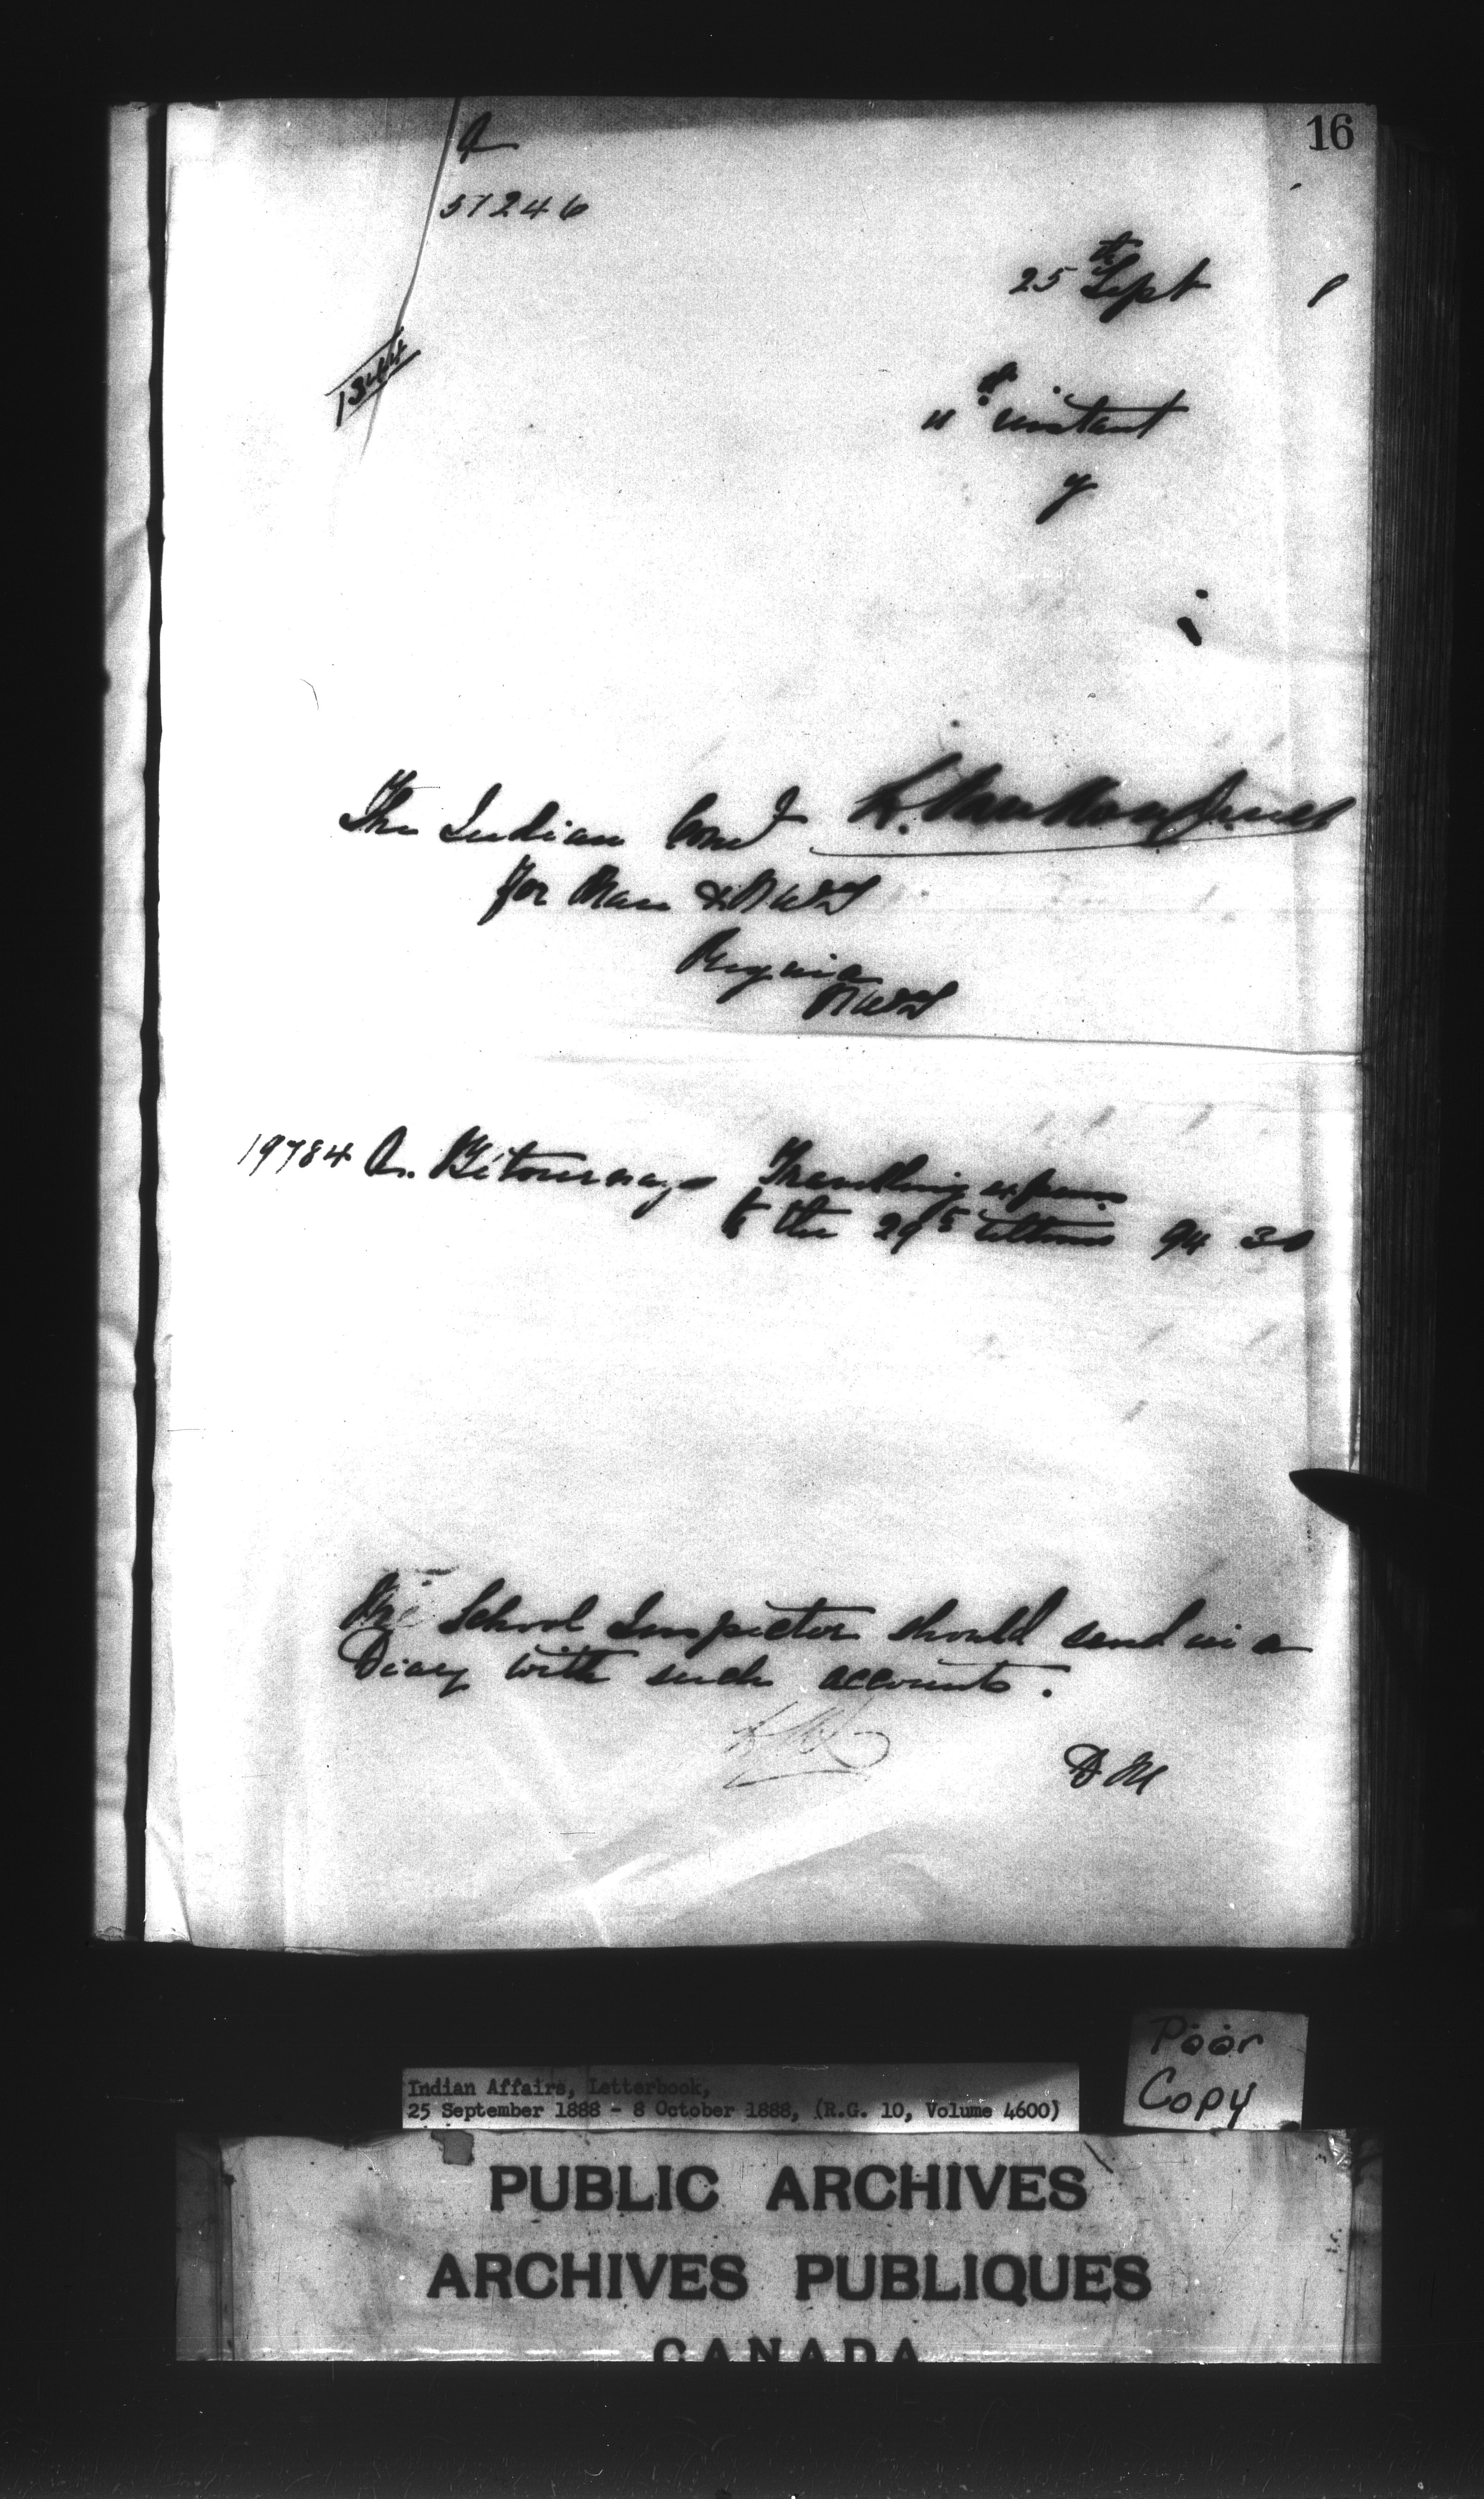 16
51246
25th Sept
instant
y
The Indian Com'r L. VanKoughnet
for Man & NWT
Regina
NWT
19784 A. Bétournay Travelling expenses
to the 29th ultimo 94 30
The School Inspector should send in a
Diary with such accounts.
DM
Poor
Copy
Indian Affairs, Letterbook,
25 September 1888 - 8 October 1888, (R.G. 10, Volume 4600)
PUBLIC ARCHIVES
ARCHIVES PUBLIQUES
CANADA